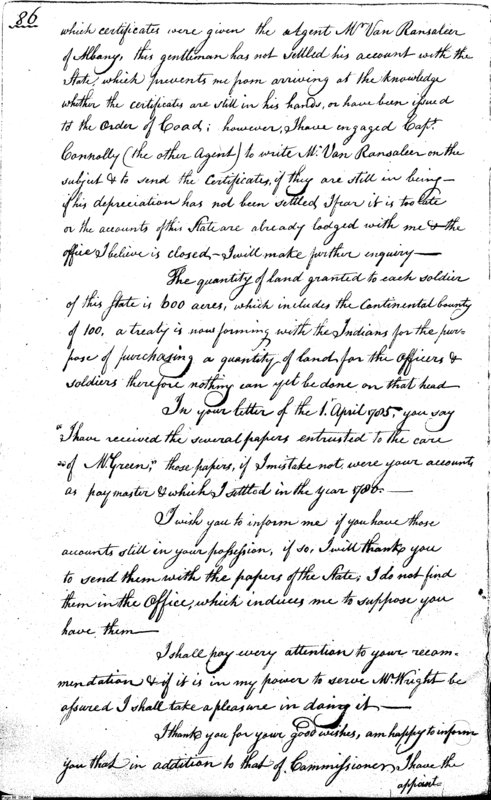 86
which certificates were given the Agent Mr Van Ransaleer
of Albany, this gentleman has not settled his account with the
State, which prevents me from arriving at the knowledge
whether the certificates are still in his hands, or have been issued
to the Order of Coad; however, I have engaged Capt.
Connolly (the other Agent) to write Mr Van Ransaleer on the
subject & to send the Certificates, if they are still in being—
if his depreciation has not been settled I fear it is too late
or the accounts of this State are already lodged with me & the
office I believe is closed,—I will make further inquiry—
The quantity of land granted to each soldier
of this State is 600 acres, which includes the Continental bounty
of 100, a treaty is now forming with the Indians for the pur-
pose of purchasing a quantity of land, for the Officers &
soldiers therefore nothing can yet be done on that head
In your letter of the 1st April 1785, you say
"I have received the several papers entrusted to the care
"of Mr Green," those papers, if I mistake not, were your accounts
as paymaster & which I settled in the year 1780.—
I wish you to inform me if you have those
accounts still in your possession, if so, I will thank you
to send them with the papers of the State; I do not find
them in the Office, which induces me to suppose you
have them—
I shall pay every attention to your recom-
mendation & if it is in my power to serve Mr Wright be
assured I shall take a pleasure in doing it—
I thank you for your good wishes, am happy to inform
you that in addition to that of Commissioner, I have the
appoint-